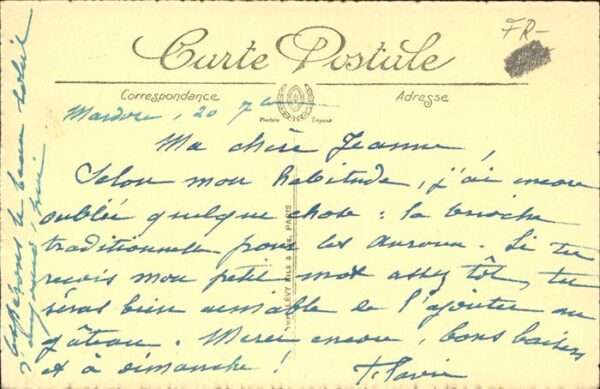 FR-
Carte Postale
Correspondance
Adresse
20 7
Ma chère Jeanne,
Selon mon habitude, j'ai encore
oublié quelque chose : la brioche
traditionnelle pour les . Si tu
reçois mon petit mot assez tôt, tu
seras bien aimable de l'ajouter au
gâteau. Merci encore, bons baisers
et à dimanche !
LÉVY FILS & Cie, PARIS
Espérons le beau soleil